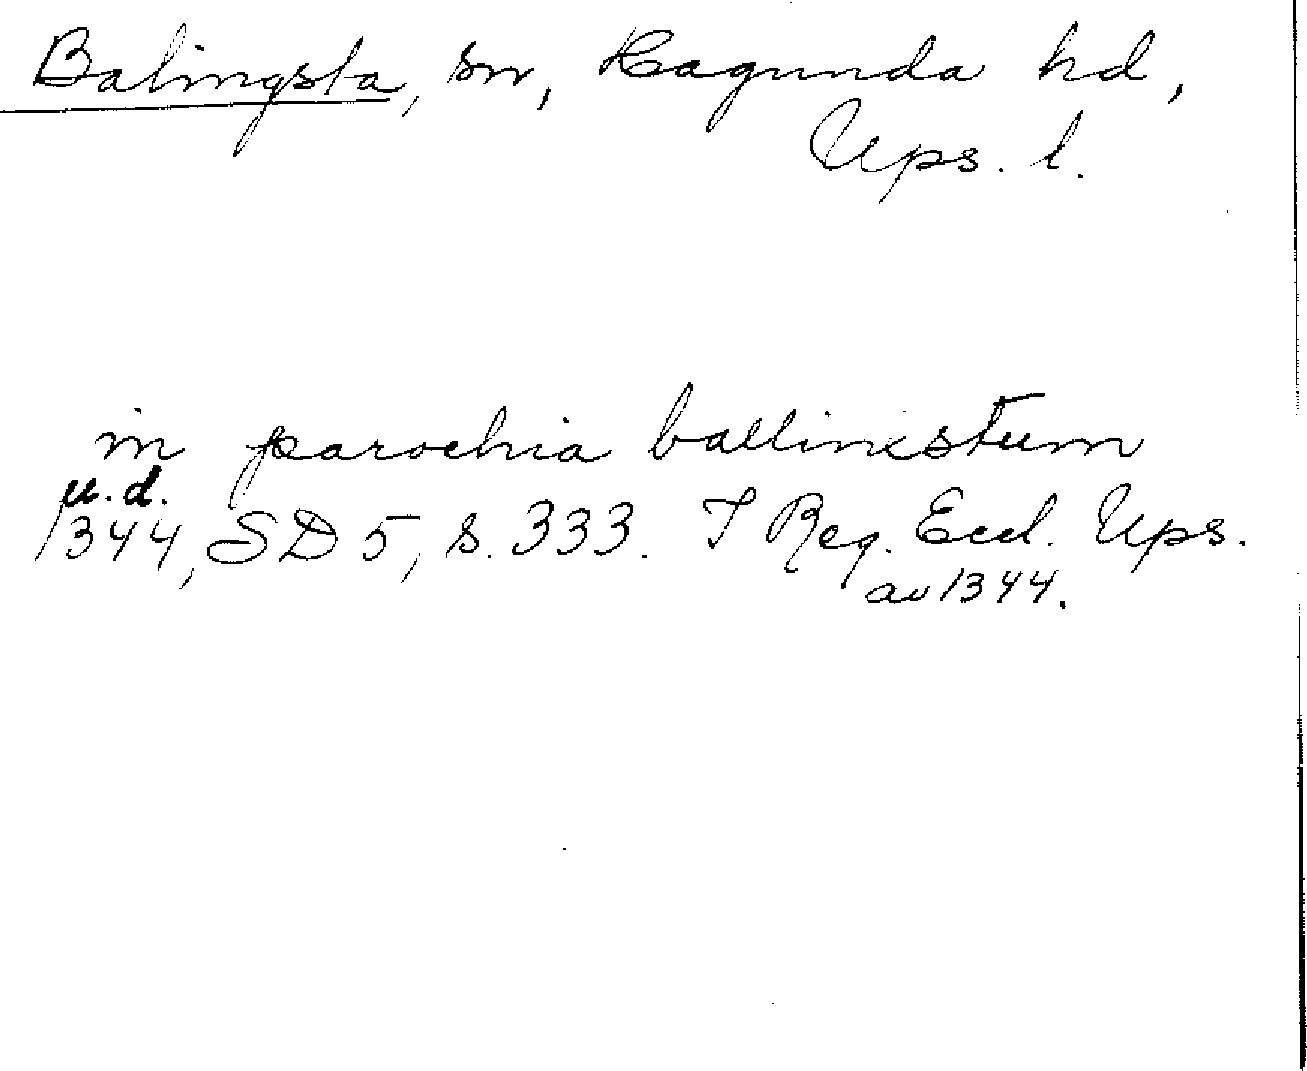 Balingsta, sn, Hagunda hd,
Ups. l.
in parochia ballincstum
u.d.
1344, SD 5, s. 333. I Reg. Eccl. Ups.
av 1344.